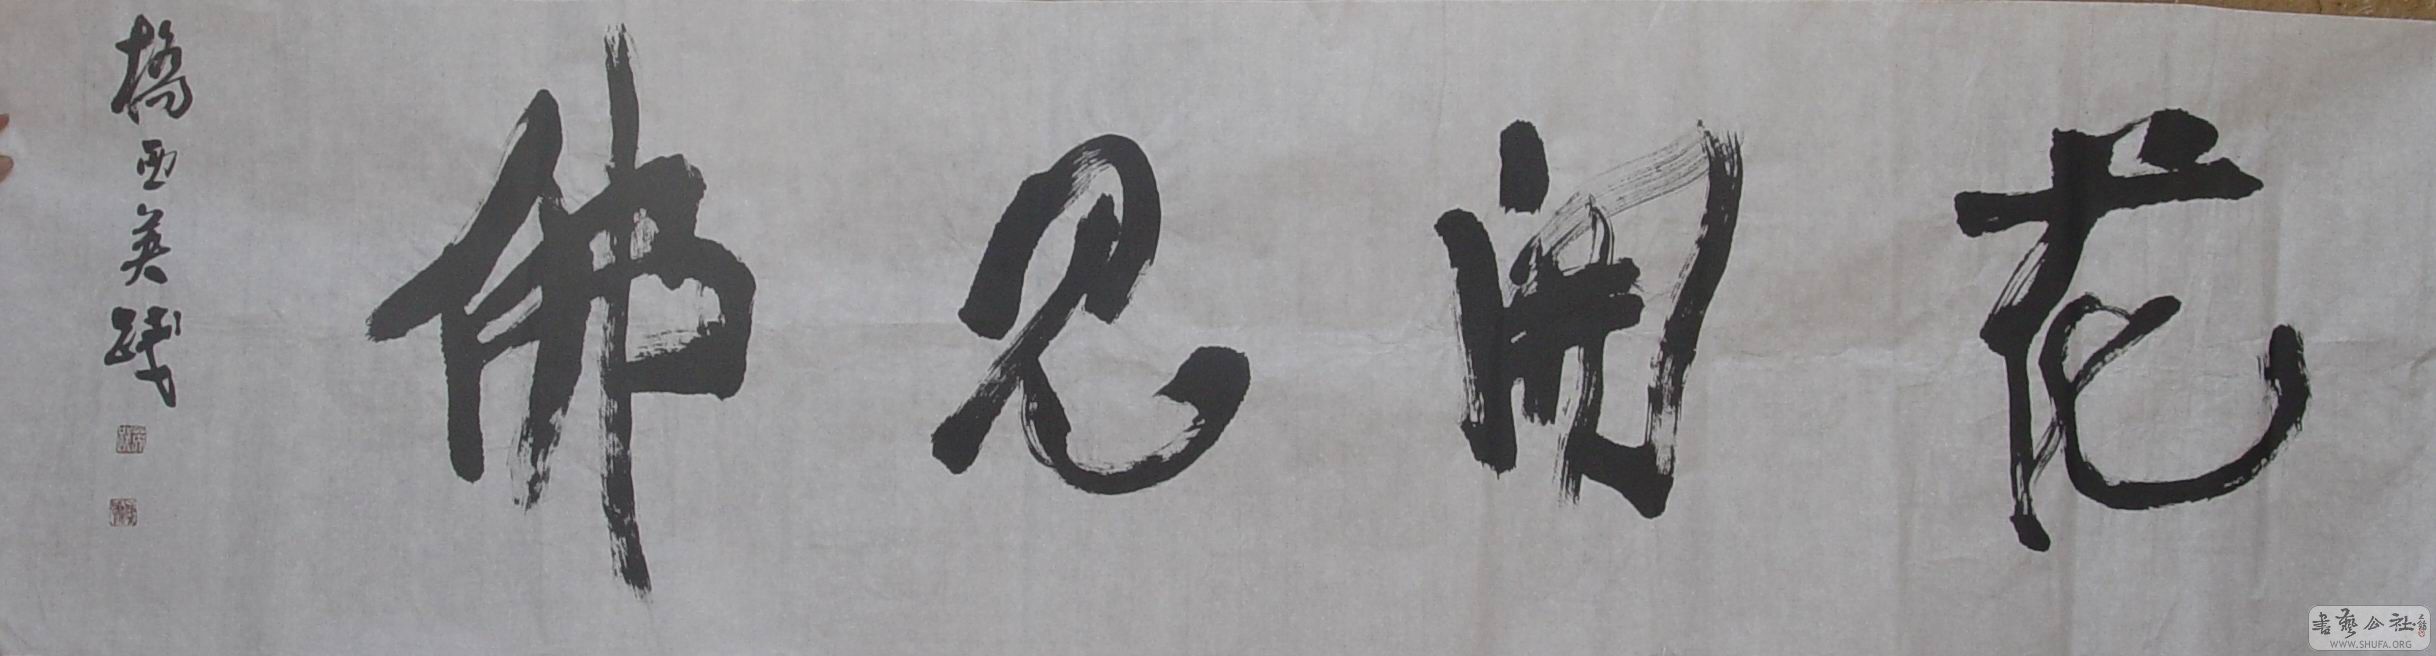 花開見佛
橋西英践
書藝公社
WWW.SHUFA.ORG